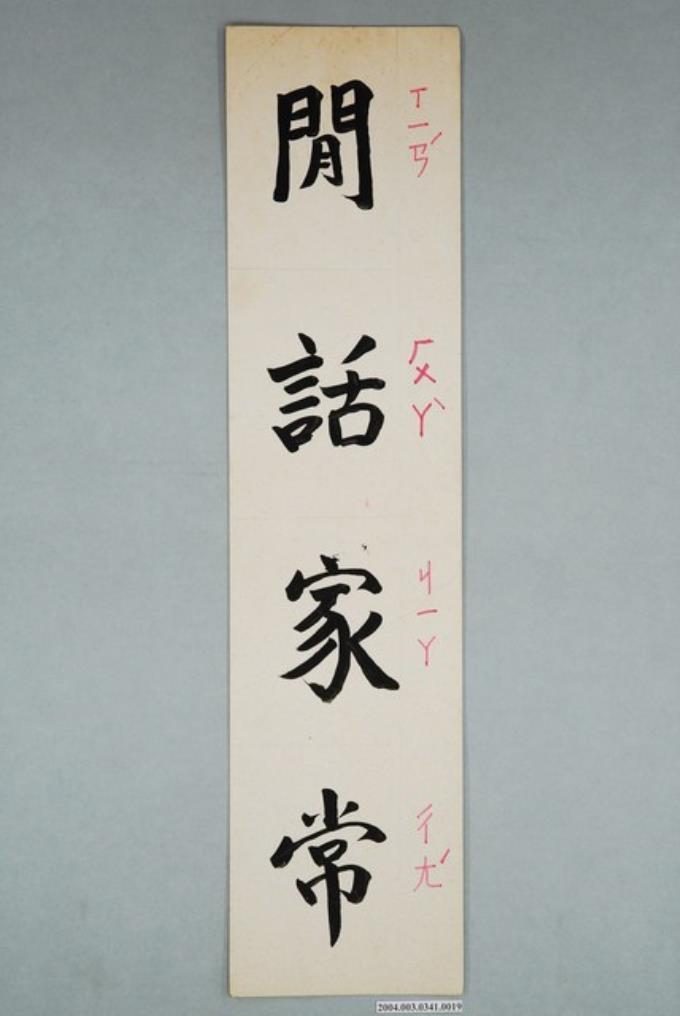 閒話家常
ㄒㄧㄢˊ
ㄏㄨㄚˋ
ㄐㄧㄚ
ㄔㄤˊ
2004.003.0341.0019